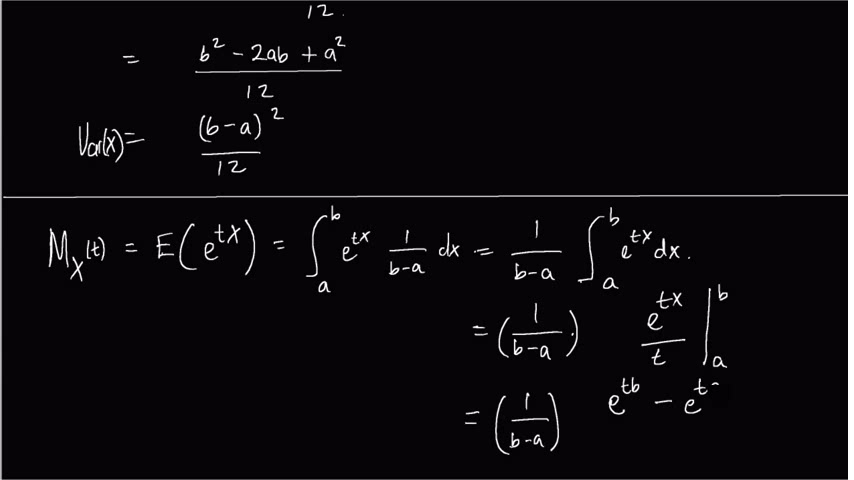 12.
= (b² - 2ab + a²)/12
Var(X) = (b-a)²/12
M_X(t) = E(e^{tX}) = ∫_a^b e^{tx} 1/(b-a) dx = 1/(b-a) ∫_a^b e^{tx} dx.
= (1/(b-a).) e^{tx}/t |_a^b
= (1/(b-a)) e^{tb} - e^{t